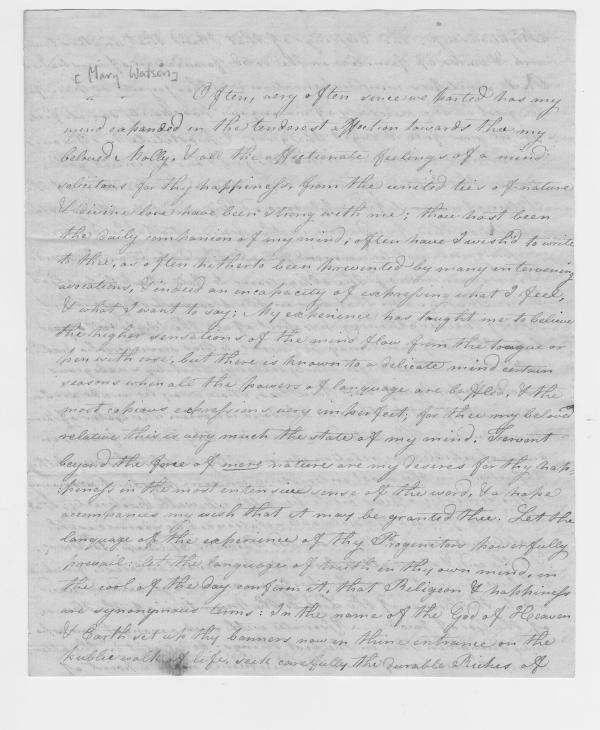 [Mary Watson]
Often, very often since we parted has my
mind expanded in the tenderest affection towards thee my
beloved Molly, & all the affectionate feelings of a mind
solicitous for thy happiness, from the united ties of nature
& divine love have been strong with me; thou hast been
the daily companion of my mind, often have I wish'd to write
to thee, as often hitherto been prevented by many intervening
avocations, & indeed an incapacity of expressing what I feel,
& what I want to say: My experience has taught me to believe
the higher sensations of the mind flow from the tongue or
pen with ease, but there is known to a delicate mind certain
seasons when all the powers of language are baffled, & the
most copious expressions very imperfect; for thee my beloved
relative this is very much the state of my mind. Fervent
beyond the force of mere nature are my desires for thy hap-
:piness in the most extensive sense of the word, & a hope
accompanies my wish that it may be granted thee. Let the
language of the experience of thy Progenitors powerfully
prevail: let the language of truth in thy own mind, in
the cool of the day confirm it, that Religion & happiness
are synonymous terms: In the name of the God of Heaven
& Earth set up thy banners now in thine entrance on the
public walk of life, seek carefully the durable Riches of